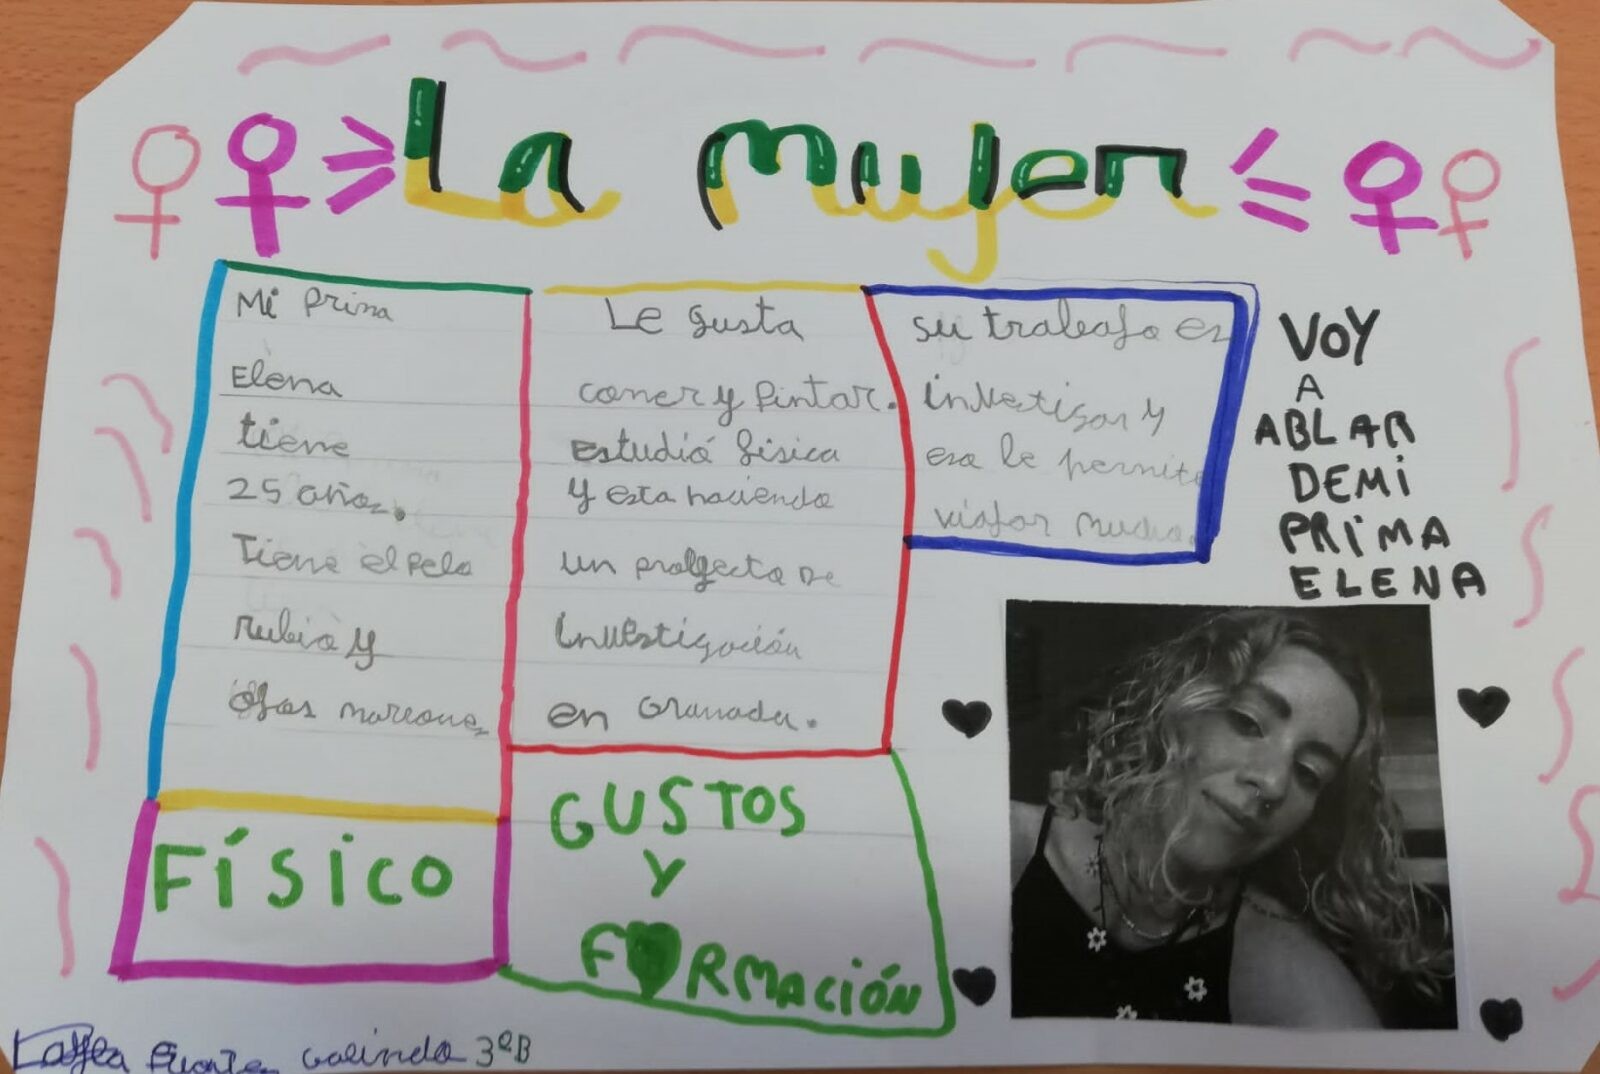 La mujer
Mi prima
Elena
tiene
25 años.
Tiene el pelo
rubio y
ojos marrones
FÍSICO
Le gusta
comer y pintar.
Estudió física
y esta haciendo
un proyecto De
investigación
en Granada.
GUSTOS
Y
FORMACIÓN
su trabajo es
investigar y
eso le permite
viajar mucho.
VOY
A
ABLAR
DE Mi
PRiMA
ELENA
Galindo 3ºB